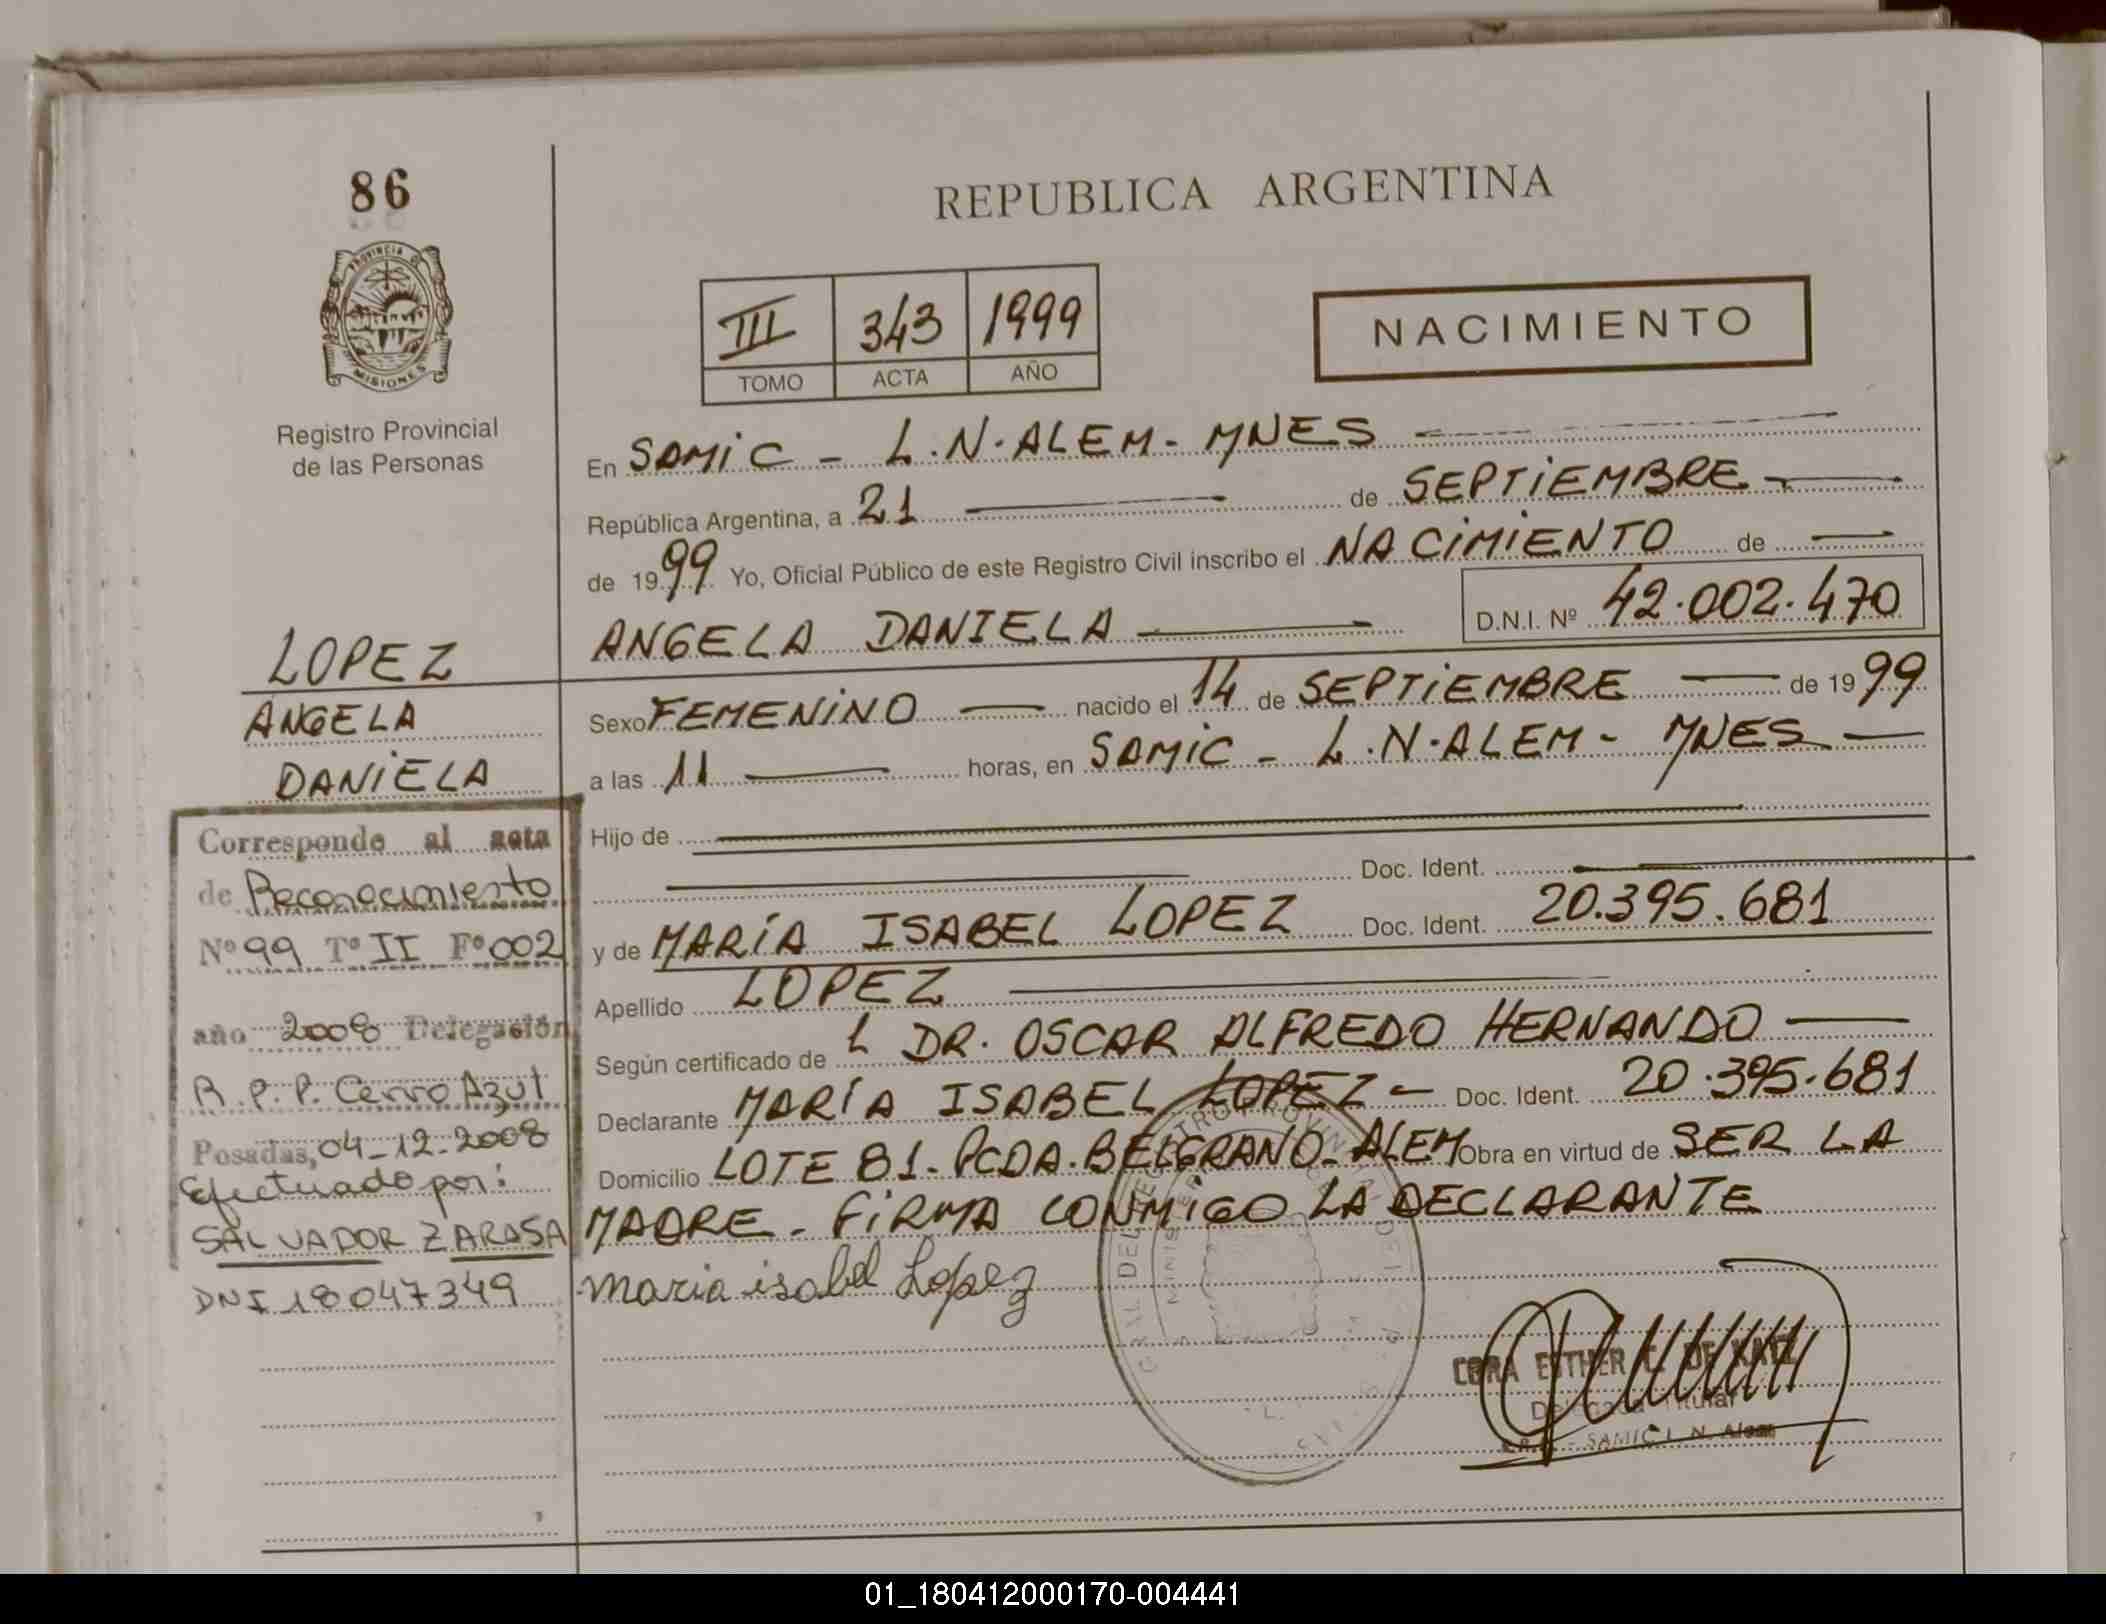 86
PROVINCIA DE
MISIONES
Registro Provincial
de las Personas
REPUBLICA ARGENTINA
III 343 1999
TOMO ACTA AÑO
NACIMIENTO
En SAMIC - L.N. ALEM - MNES
República Argentina, a 21 de SEPTIEMBRE
de 1999 Yo, Oficial Público de este Registro Civil inscribo el NACIMIENTO de
ANGELA DANIELA D.N.I. Nº 42.002.470
Sexo FEMENINO nacido el 14 de SEPTIEMBRE de 1999
a las 11 horas, en SAMIC - L.N. ALEM - MNES
Hijo de
Doc. Ident.
y de MARÍA ISABEL LOPEZ Doc. Ident. 20.395.681
Apellido LOPEZ
Según certificado de L DR. OSCAR ALFREDO HERNANDO
Declarante MARÍA ISABEL LOPEZ - Doc. Ident. 20.395.681
Domicilio LOTE 81 - PCDA. BELGRANO - ALEM Obra en virtud de SER LA
MADRE - FIRMA CONMIGO LA DECLARANTE
maria isabel Lopez
ESTHER C. DE
Delegada Titular
SAMIC L. N. Alem
LOPEZ
ANGELA
DANIELA
Corresponde al acta
de Reconocimiento
Nº 99 Tº II Fº 002
año 2008 Delegación
R.P.P. Cerro Azul
Posadas, 04-12-2008
Efectuado por:
SALVADOR ZARASA
DNI 18047349
01_180412000170-004441